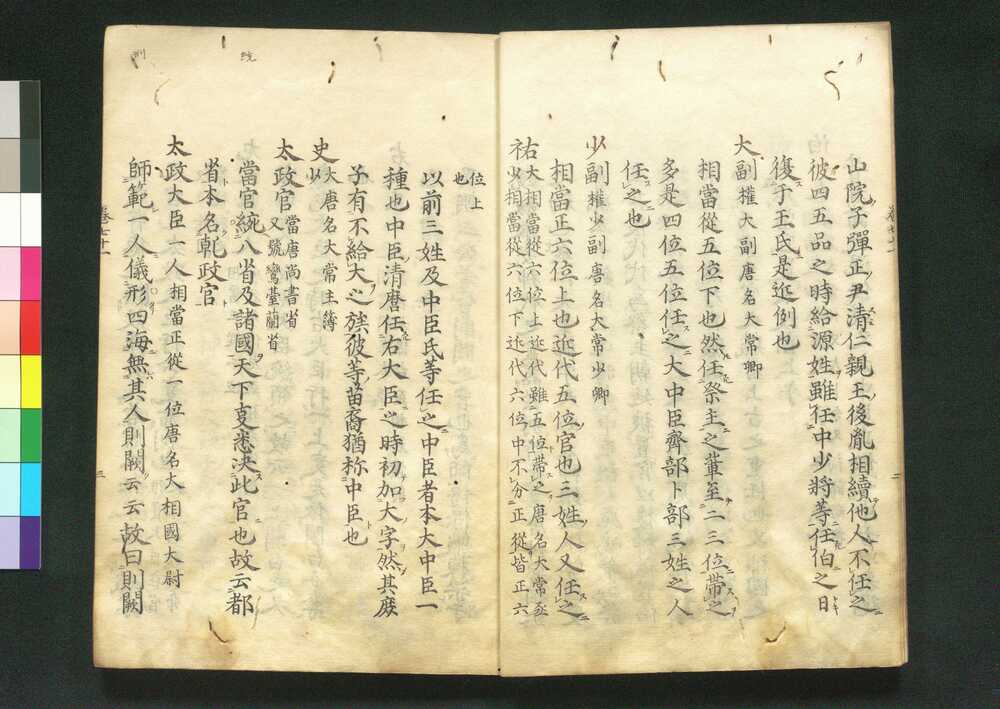 山院子彈正尹清仁親王後胤相續他人不任之
彼四五品之時給源姓雖任中少將等任伯之日
復于王氏是近例也
大副 權大副 唐名大常卿
相當從五位下也然任祭主之輩至二三位帶之
多是四位五位任之大中臣齊部卜部三姓之人
任之也
少副 權少副 唐名大常少卿
相當正六位上也近代五位官也三姓人又任之
祐 大相當從六位上近代雖五位帶之唐名大常丞
少相當從六位下近代六位中不分正從皆正六
位上
也
以前三姓及中臣氏等任之中臣者本大中臣一
種也中臣清麿任右大臣之時初加大字然其庶
子有不給大之族彼等苗裔猶称中臣也
史 大 唐名大常主簿
少
太政官 當唐尚書省
又號鸞臺蘭省
當官統八省及諸國天下支悉决此官也故云都
省本名乹政官
太政大臣一人 相當正從一位唐名大相國大尉
師範一人儀形四海無其人則闕云云故曰則闕
卷七十一
卷七十一